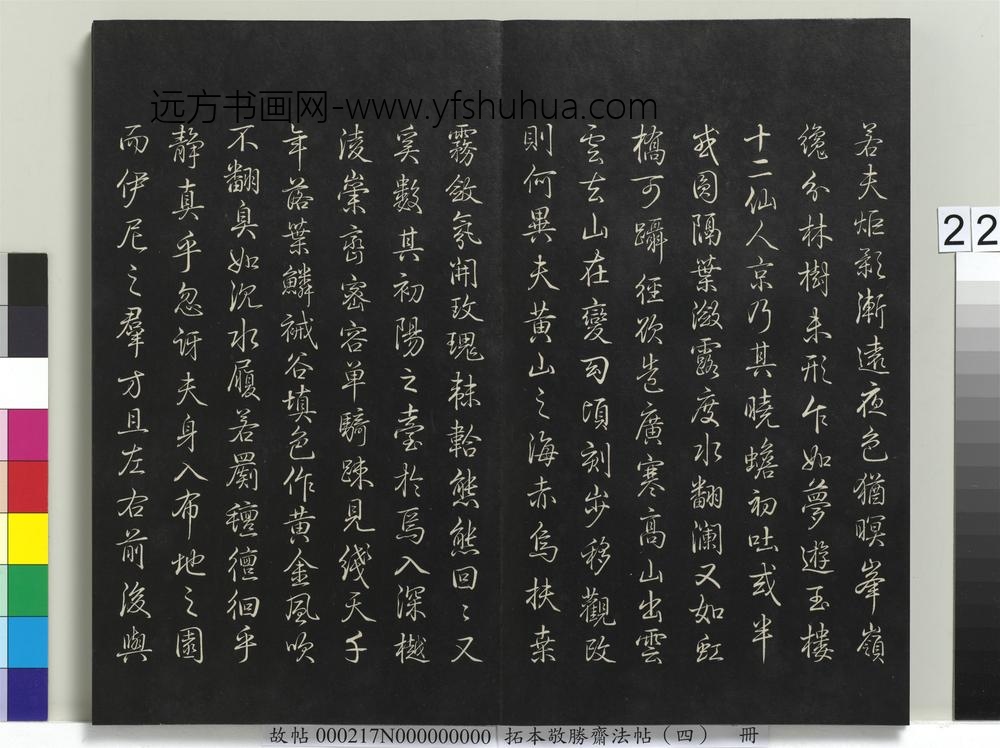 远方书画网-www.yfshuhua.com
若夫炬影漸遠夜色猶暝峯嶺
纔分林樹未形乍如夢遊玉樓
十二仙人京乃其曉蟾初吐或半
或圓隔葉瀲露度水翻瀾又如虹
橋可躡徑欲造廣寒高山出雲
雲去山在變幻頃刻步移觀改
則何異夫黃山之海赤烏扶桒
霧斂氛開玫瑰熊熊回〻又
奚數其初陽之臺於焉入深樾
淩密容單騎踈見綫天千
年落葉鱗裓谷填色作黃金風吹
不翻臭如沉水履若罽氊儃徊乎
靜真乎忽訝夫身入布地之園
而伊尼之羣才且左右前後與
22
故帖 000217N000000000 拓本敬勝齋法帖（四） 冊